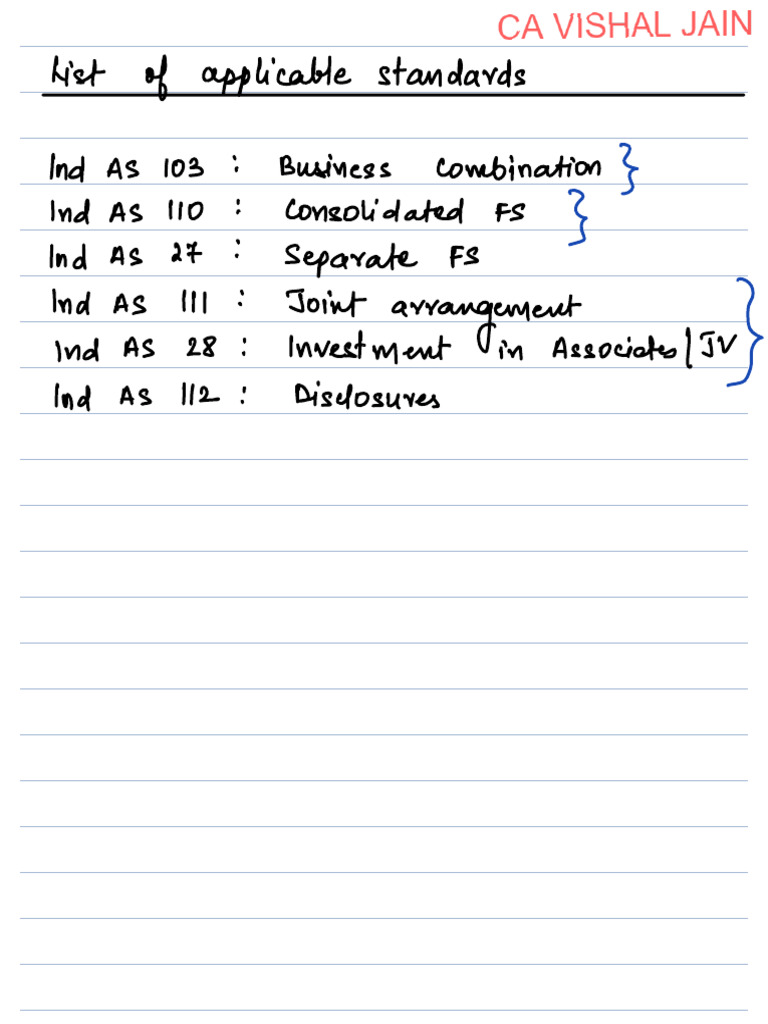 CA VISHAL JAIN
List of applicable standards
Ind AS 103 : Business Combination
Ind AS 110 : Consolidated FS
Ind AS 27 : Separate FS
Ind AS 111 : Joint arrangement
Ind AS 28 : Investment in Associates/JV
Ind AS 112 : Disclosures